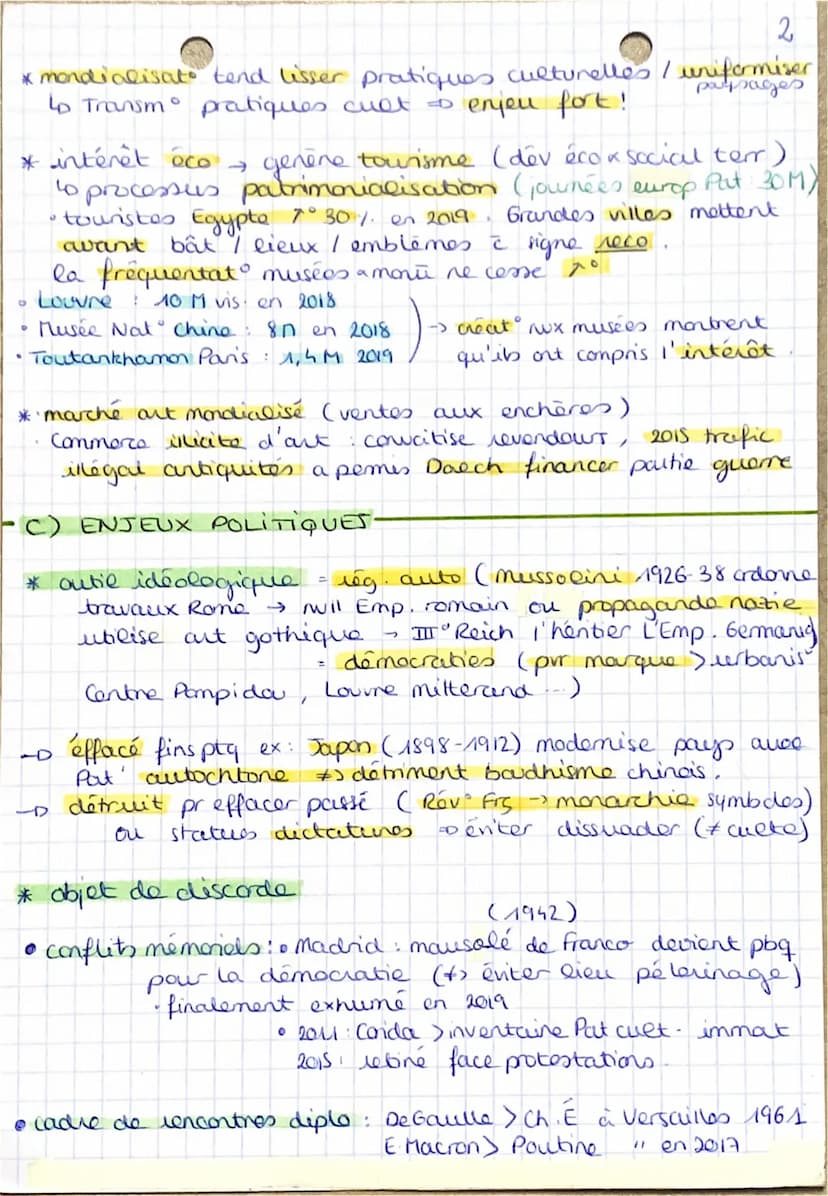 2
* mondialisat° tend lisser pratiques culturelles / uniformiser
paysages
↳ Transm° pratiques cult => enjeu fort !
* intérêt éco → génère tourisme (dév éco x social terr)
↳ processus patrimonialisation (journées europ Pat : 30 M)
• touristes Egypte ↗° 30 % en 2019. Grandes villes mettent
avant bât / lieux / emblèmes c̄ signe reco.
la fréquentat° musées a monū ne cesse ↗°
• Louvre : 10 M vis. en 2018
• Musée Nat° Chine : 8M en 2018
• Toutankhamon Paris : 1,4 M 2019
→ créat° nvx musées montrent
qu'ils ont compris l'intérêt.
* marché art mondialisé (ventes aux enchères)
• Commerce illicite d'art : convoitise revendeurs, 2015 trafic
illégal antiquités a permis Daech financer partie guerre
C) ENJEUX POLITIQUES
* outil idéologique = rég. auto (Mussolini 1926-38 ordonne
travaux Rome → nvll Emp. romain ou propagande nazie
utilise art gothique → III° Reich l'héritier L'Emp. Germaniq
= démocraties (pvr marque > urbanis°
Centre Pompidou, Louvre Mitterand ...)
→ éffacé fins ptq ex : Japon (1898-1912) modernise pays avec
Pat' autochtone ≠> détriment boudhisme chinois.
→ détruit pr effacer passé (Rév° Frs → monarchie symboles)
ou statues dictatures => éviter dissuader (≠ culte)
* objet de discorde
(1942)
• conflits mémoriels : • Madrid : mausolé de Franco devient pbq
pour la démocratie (≠> éviter lieu pélerinage)
• finalement exhumé en 2019
• 2011 : Corida > inventaire Pat cult. immat
2015 : retiré face protestations.
• cadre de rencontres diplo : De Gaulle > Ch. É à Versailles 1961
E. Macron > Poutine " en 2017